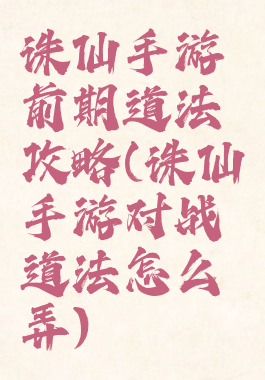 诛仙手游
前期道法
攻略(诛仙
手游对战
道法怎么
弄)